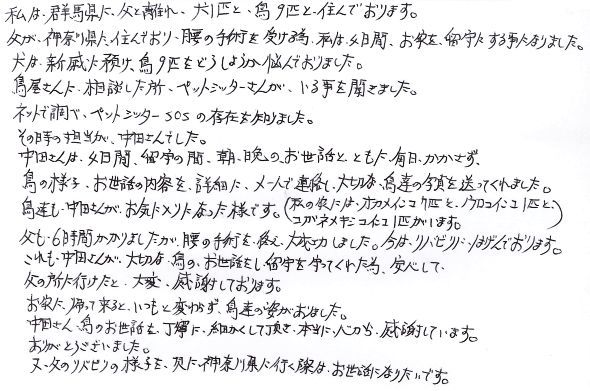 私は、群馬県に、父と離れ、犬1匹と、鳥9匹と住んでおります。
父が、神奈川県に住んでおり、腰の手術を受ける為、私は、4日間、お家を、留守にする事になりました。
犬は、親戚に預け、鳥9匹をどうしようか悩んでおりました。
鳥屋さんに、相談した所、ペットシッターさんが、いる事を聞きました。
ネットで調べ、ペットシッターSOSの存在を知りました。
その時の担当が、中田さんでした。
中田さんは、4日間、留守の間、朝、晩の、お世話と、ともに、毎日、かかさず、
鳥の様子、お世話の内容を、詳細に、メールで連絡し、大切な、鳥達の写真を送ってくれました。
鳥達も、中田さんが、お気に入りになった様です。(私の家には、オカメインコ7匹と、ウロコインコ1匹と、コガネメキシコインコ1匹がいます。)
父も、6時間かかりましたが、腰の手術を終え、大成功しました。今は、リハビリに、はげんでおります。
これも、中田さんが、大切な、鳥の、お世話をし、留守を守ってくれた為、安心して、
父の所に行けたと、大変、感謝しております。
お家に、帰って来ると、いつもと変わらず、鳥達の姿がありました。
中田さん、鳥のお世話を、丁寧に、細かくして頂き、本当に、心から、感謝しています。
ありがとうございました。
又、父のリハビリの様子を、見に、神奈川県に行く際は、お世話になりたいです。